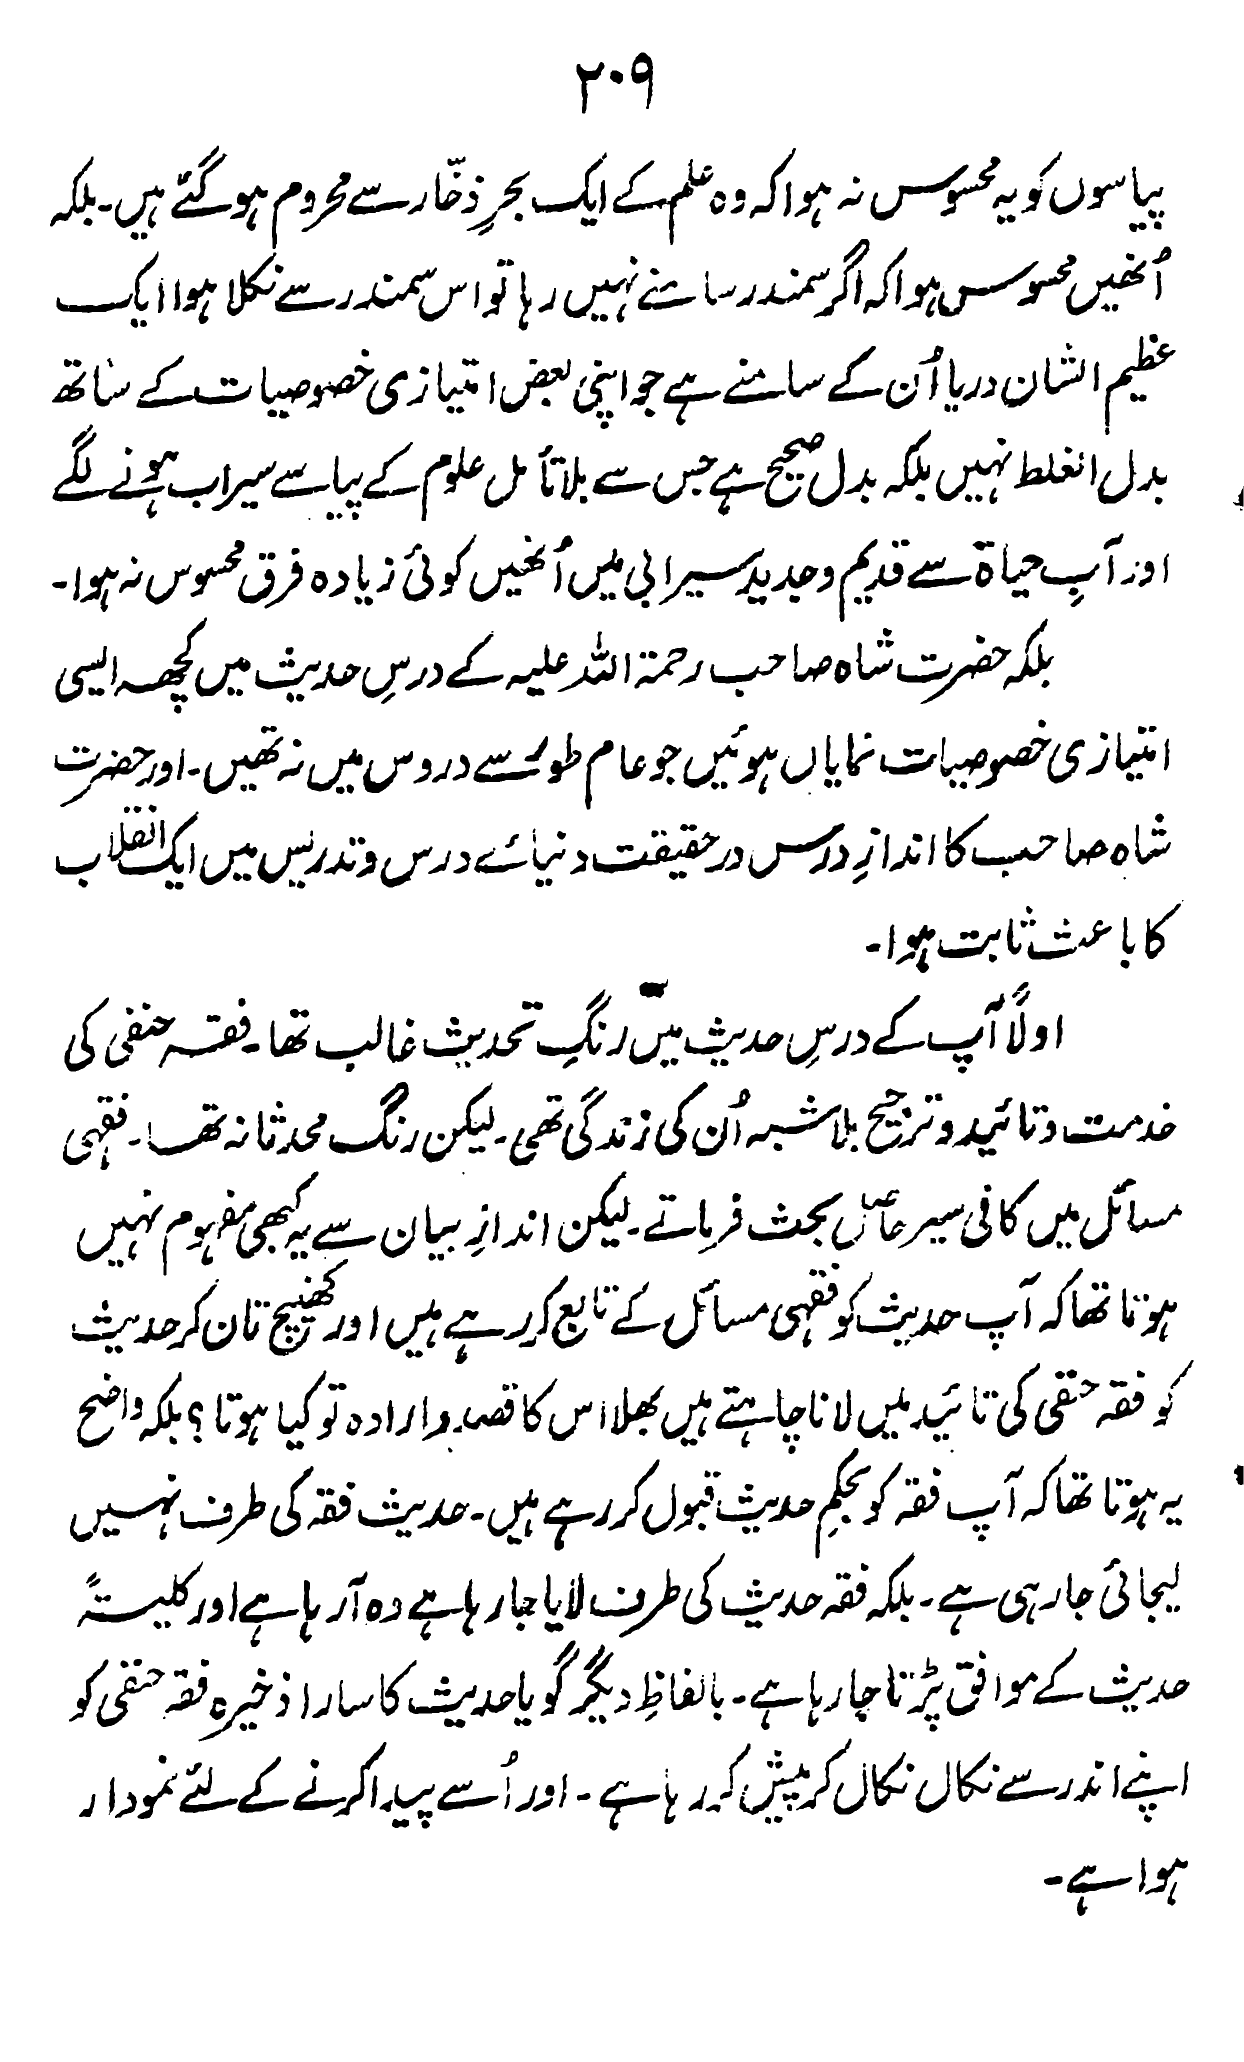 ۲۰۹
پیاسوں کو یہ محسوس نہ ہوا کہ وہ علم کے ایک بحرِ ذخّار سے محروم ہو گئے ہیں۔ بلکہ
اُنھیں محسوس ہوا کہ اگر سمندر سامنے نہیں رہا تو اس سمندر سے نکلا ہوا ایک
عظیم الشان دریا اُن کے سامنے ہے جو اپنی بعض امتیازی خصوصیات کے ساتھ
بدل الغلط نہیں بلکہ بدل صحیح ہے جس سے بلا تأمل علوم کے پیاسے سیراب ہونے لگے
اور آبِ حیاۃ سے قدیم و جدید سیرابی میں اُنھیں کوئی زیادہ فرق محسوس نہ ہوا۔
بلکہ حضرت شاہ صاحب رحمۃ اللہ علیہ کے درسِ حدیث میں کچھ ایسی
امتیازی خصوصیات نمایاں ہوئیں جو عام طور سے دروس میں نہ تھیں۔ اور حضرت
شاہ صاحب کا اندازِ درس در حقیقت دنیائے درس و تدریس میں ایک انقلاب
کا باعث ثابت ہوا۔
اولاً آپ کے درسِ حدیث میں رنگِ تحدیث غالب تھا۔ فقہ حنفی کی
خدمت و تائید و ترجیح بلا شبہ اُن کی زندگی تھی۔ لیکن رنگ محدثانہ تھا۔ فقہی
مسائل میں کافی سیر حاصل بحث فرماتے۔ لیکن اندازِ بیان سے یہ کبھی مفہوم نہیں
ہوتا تھا کہ آپ حدیث کو فقہی مسائل کے تابع کر رہے ہیں اور کھینچ تان کر حدیث
کو فقہ حنفی کی تائید میں لانا چاہتے ہیں بھلا اس کا قصد و ارادہ تو کیا ہوتا؟ بلکہ واضح
یہ ہوتا تھا کہ آپ فقہ کو بحکمِ حدیث قبول کر رہے ہیں۔ حدیث فقہ کی طرف نہیں
لیجائی جا رہی ہے۔ بلکہ فقہ حدیث کی طرف لایا جا رہا ہے وہ آ رہا ہے اور کلیتہً
حدیث کے موافق پڑتا جا رہا ہے۔ بالفاظِ دیگر گویا حدیث کا سارا ذخیرہ فقہ حنفی کو
اپنے اندر سے نکال نکال کر پیش کر رہا ہے۔ اور اُسے پیدا کرنے کے لئے نمودار
ہوا ہے۔